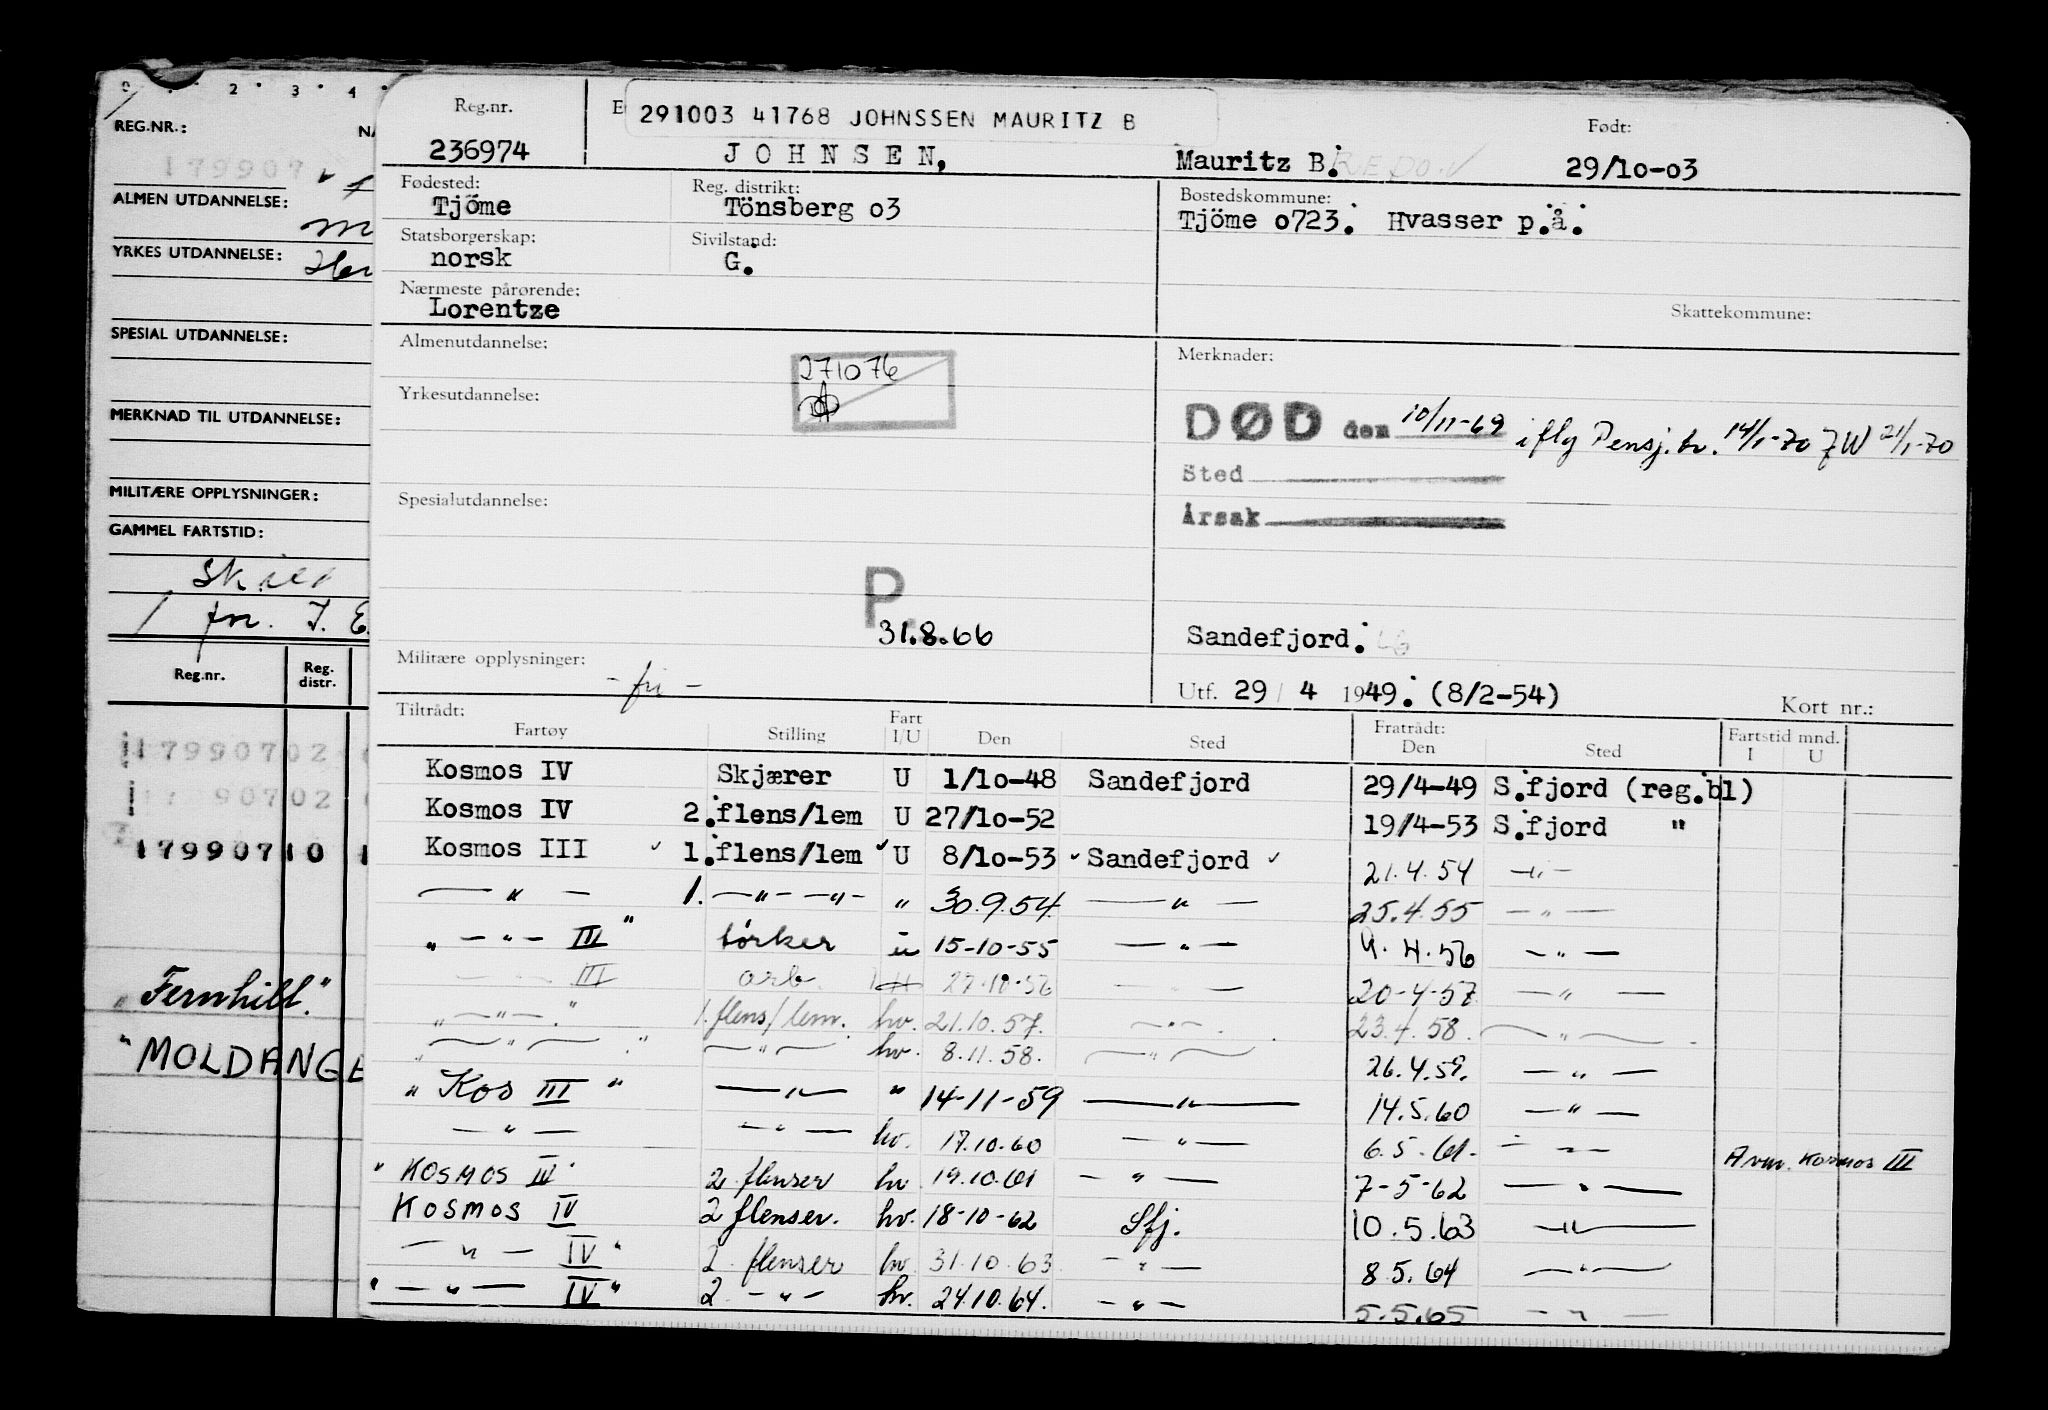 2 · 3 · 4 ·
REG.NR.:
179907
ALMEN UTDANNELSE:
YRKES UTDANNELSE:
SPESIAL UTDANNELSE:
MERKNAD TIL UTDANNELSE:
MILITÆRE OPPLYSNINGER:
GAMMEL FARTSTID:
fm. J. E.
Reg.nr. Reg. distr.
17990702
17990702
17990710
"Fernhill."
"MOLDANGE
Reg.nr. 291003 41768 JOHNSSEN MAURITZ B Født:
236974 JOHNSEN, Mauritz B. 29/10-03
Fødested: Reg. distrikt: Bostedskommune:
Tjöme Tönsberg 03 Tjöme 0723. Hvasser p.å.
Statsborgerskap: Sivilstand:
norsk G.
Nærmeste pårørende:
Lorentze Skattekommune:
Almenutdannelse: Merknader:
271076
Yrkesutdannelse:
DØD den 10/11-69 iflg Pensj.br. 14/1-70 ZW 21/1-70
Sted
Årsak
Spesialutdannelse:
P.
31.8.66
Sandefjord.
Militære opplysninger: - fri -
Utf. 29 / 4 1949. (8/2-54) Kort nr.:
Tiltrådt: Fratrådt: Fartstid mnd.
Fartøy Stilling Fart I/U Den Sted Den Sted I U
Kosmos IV Skjærer U 1/10-48 Sandefjord 29/4-49 S.fjord (reg.bl)
Kosmos IV 2.flens/lem U 27/10-52 19/4-53 S.fjord "
Kosmos III ✓ 1.flens/lem ✓ U 8/10-53 ✓ Sandefjord ✓ 21.4.54 —"—
— " — 1. —"— —"— " 30.9.54 — " — 25.4.55 — " —
" — " — III " tørker u 15-10-55 — " — 9.4.56 — " —
III arb. 27.10.56 — 20-4-57 — " —
" — " — " 1. flens/lem. hv. 21.10.57. — " — 23.4.58. — " —
" — " — " — " — hv. 8.11.58. — " — 26.4.59. — " —
" Kos III " — " — " 14-11-59 — " — 14.5.60 — " —
— " — — " — hv. 17.10.60 — " — 6.5.61. — " — Avm. Kosmos III
" KOSMOS IV " 2 flenser hv 19.10.61 — " — 7-5-62 — " —
KOSMOS IV 2 flenser. hv. 18-10-62 Sfj. 10.5.63 — " —
— " — IV " 2 flenser hv 31.10.63 — " — 8.5.64 — " —
" — " — IV " 2 — " — hv. 24.10.64. — " — 5.5.65 — " —